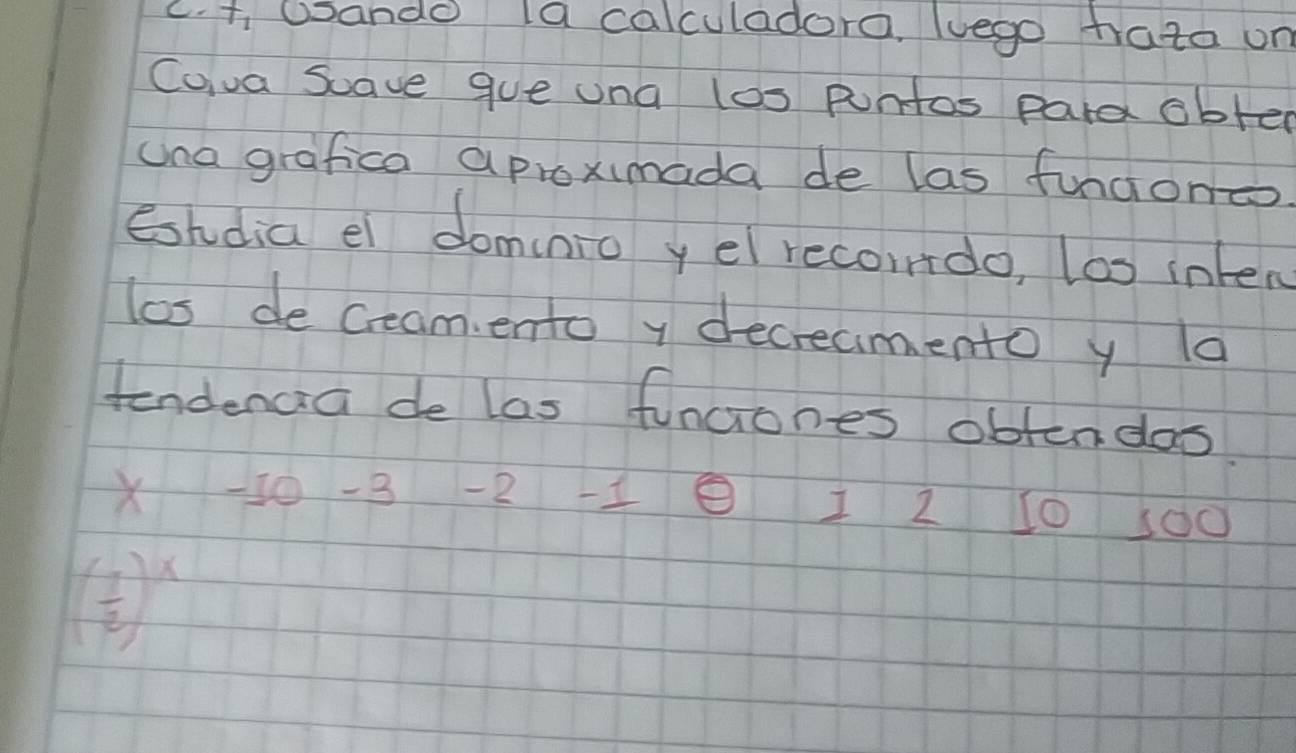 Usando la calculadora. luego trazo un
Cuva suave que una los puntos para obten
una gráfica aproximada de las funciones.
Estudia el dominio y el recorrido, los inter
los de crecimiento y decrecimiento y la
tendencia de las funciones obtenidas.
x -10 -3 -2 -1 0 1 2 10 100
(1/2)^x